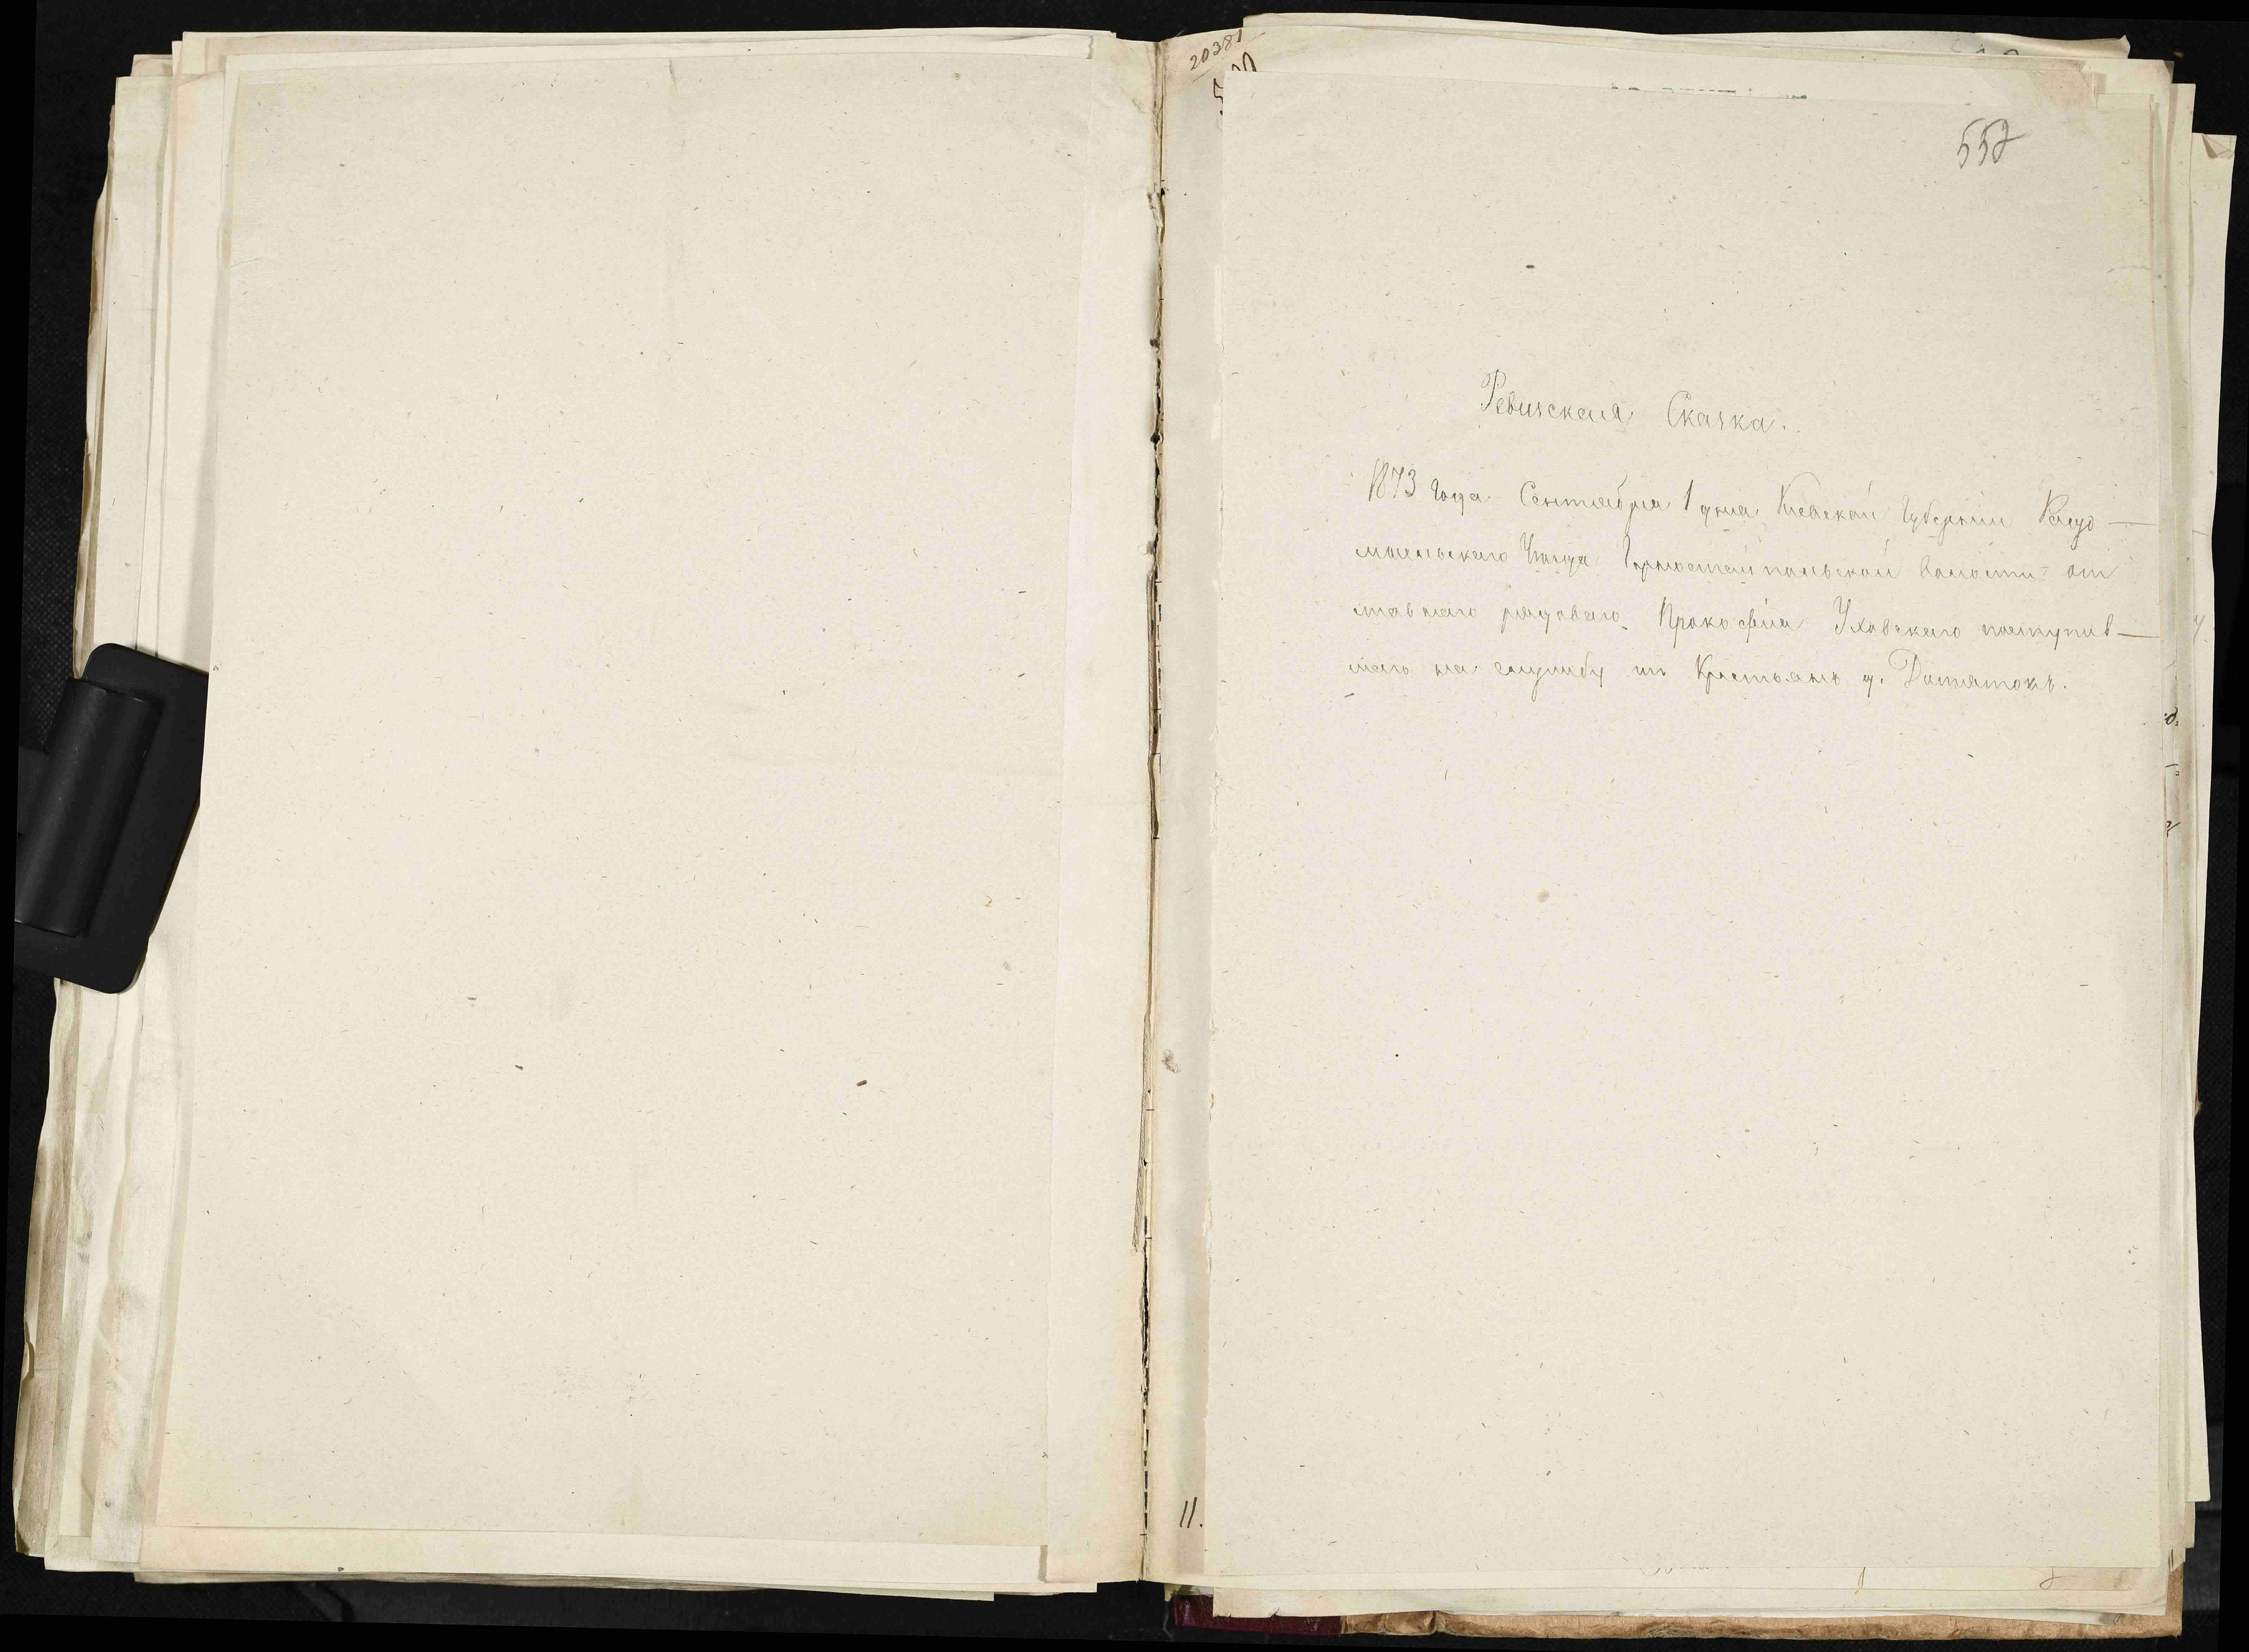 20381
557
Ревизская Сказка.
1873 года Сентября 1 дня Киевской Губернии Радо-
мысльскаго Уезда Горностайпольской волости от
ставнаго рядоваго Прокофия Уховскаго поступив-
шаго на службу из Крестьянъ д. Дитятокъ.
11.